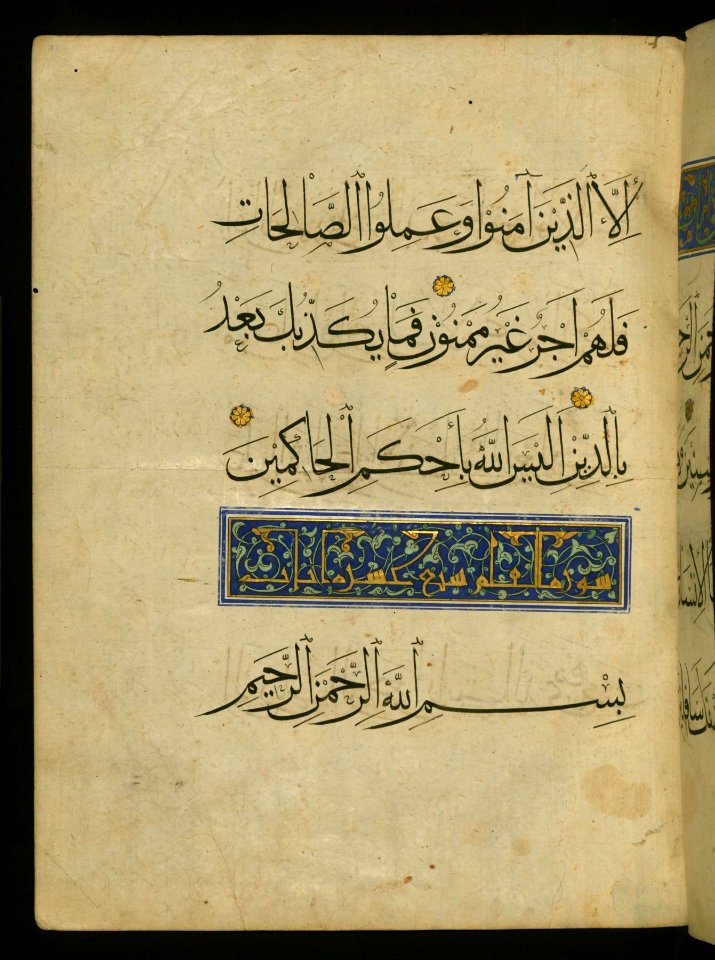 إِلَّا الَّذِينَ آمَنُوا وَعَمِلُوا الصَّالِحَاتِ
فَلَهُمْ أَجْرٌ غَيْرُ مَمْنُونٍ فَمَا يُكَذِّبُكَ بَعْدُ
بِالدِّينِ أَلَيْسَ اللَّهُ بِأَحْكَمِ الْحَاكِمِينَ
سورة العلق تسع عشرة آيات
بِسْمِ اللَّهِ الرَّحْمَنِ الرَّحِيمِ